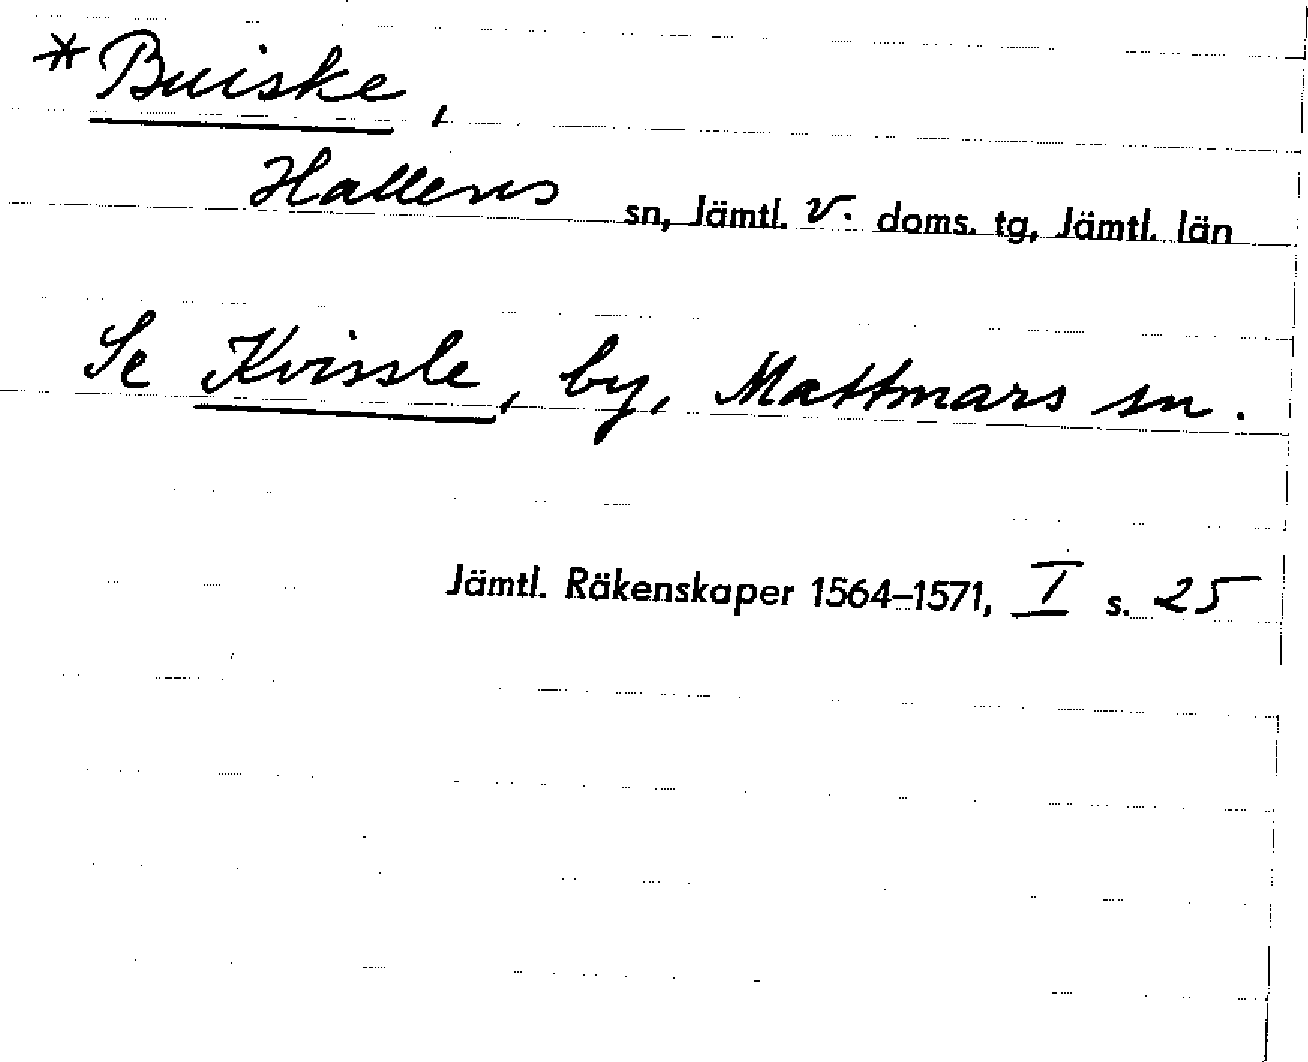 *Buiske,
Hallens sn, Jämtl. v. doms. tg, Jämtl. län
Se Kvissle, by, Mattmars sn.
Jämtl. Räkenskaper 1564–1571, I s. 25